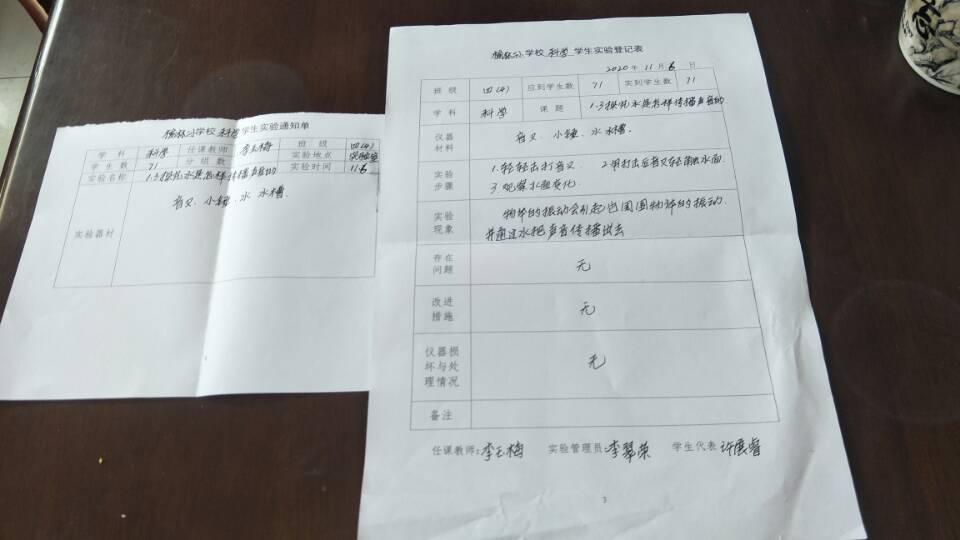 榆林小学校科学学生实验通知单
学科 科学 任课教师 李玉梅 班级 四(4)
学生数 71 分组数 实验地点 实验室
实验名称 1.3探究水是怎样传播声音的 实验时间 11.6
实验器材 音叉、小锤、水 水槽.
榆林小学校 科学 学生实验登记表
2020年 11月 6日
班级 四(4) 应到学生数 71 实到学生数 71
学科 科学 课题 1.3探究水是怎样传播声音的.
仪器材料 音叉、小锤、水 水槽.
实验步骤 1.轻轻击打音叉 2.用打击后音叉轻触水面.
3.观察水面变化.
实验现象 物体的振动会引起周围物体的振动.
并通过水把声音传播出去
存在问题 无
改进措施 无
仪器损坏与处理情况 无
备注
任课教师:李玉梅 实验管理员:李翠荣 学生代表 许展睿
3